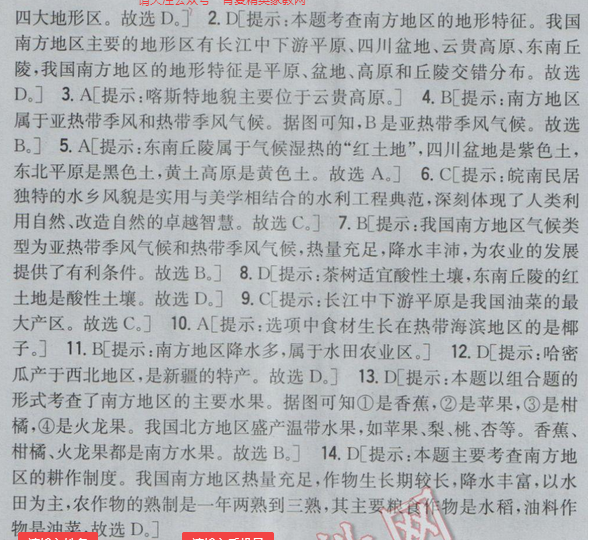 四大地形区。故选 D。] 2. D[提示:本题考查南方地区的地形特征。我国
南方地区主要的地形区有长江中下游平原、四川盆地、云贵高原、东南丘
陵,我国南方地区的地形特征是平原、盆地、高原和丘陵交错分布。故选
D。] 3. A[提示:喀斯特地貌主要位于云贵高原。] 4. B[提示:南方地区
属于亚热带季风和热带季风气候。据图可知,B 是亚热带季风气候。故选
B。] 5. A[提示:东南丘陵属于气候湿热的“红土地”,四川盆地是紫色土,
东北平原是黑色土,黄土高原是黄色土。故选 A。] 6. C[提示:皖南民居
独特的水乡风貌是实用与美学相结合的水利工程典范,深刻体现了人类利
用自然、改造自然的卓越智慧。故选 C。] 7. B[提示:我国南方地区气候类
型为亚热带季风气候和热带季风气候,热量充足,降水丰沛,为农业的发展
提供了有利条件。故选 B。] 8. D[提示:茶树适宜酸性土壤,东南丘陵的红
土地是酸性土壤。故选 D。] 9. C[提示:长江中下游平原是我国油菜的最
大产区。故选 C。] 10. A[提示:选项中食材生长在热带海滨地区的是椰
子。] 11. B[提示:南方地区降水多,属于水田农业区。] 12. D[提示:哈密
瓜产于西北地区,是新疆的特产。故选 D。] 13. D[提示:本题以组合题的
形式考查了南方地区的主要水果。据图可知①是香蕉,②是苹果,③是柑
橘,④是火龙果。我国北方地区盛产温带水果,如苹果、梨、桃、杏等。香蕉、
柑橘、火龙果都是南方水果。故选 B。] 14. D[提示:本题主要考查南方地
区的耕作制度。我国南方地区热量充足,作物生长期较长,降水丰富,以水
田为主,农作物的熟制是一年两熟到三熟,其主要粮食作物是水稻,油料作
物是油菜。故选 D。]
网